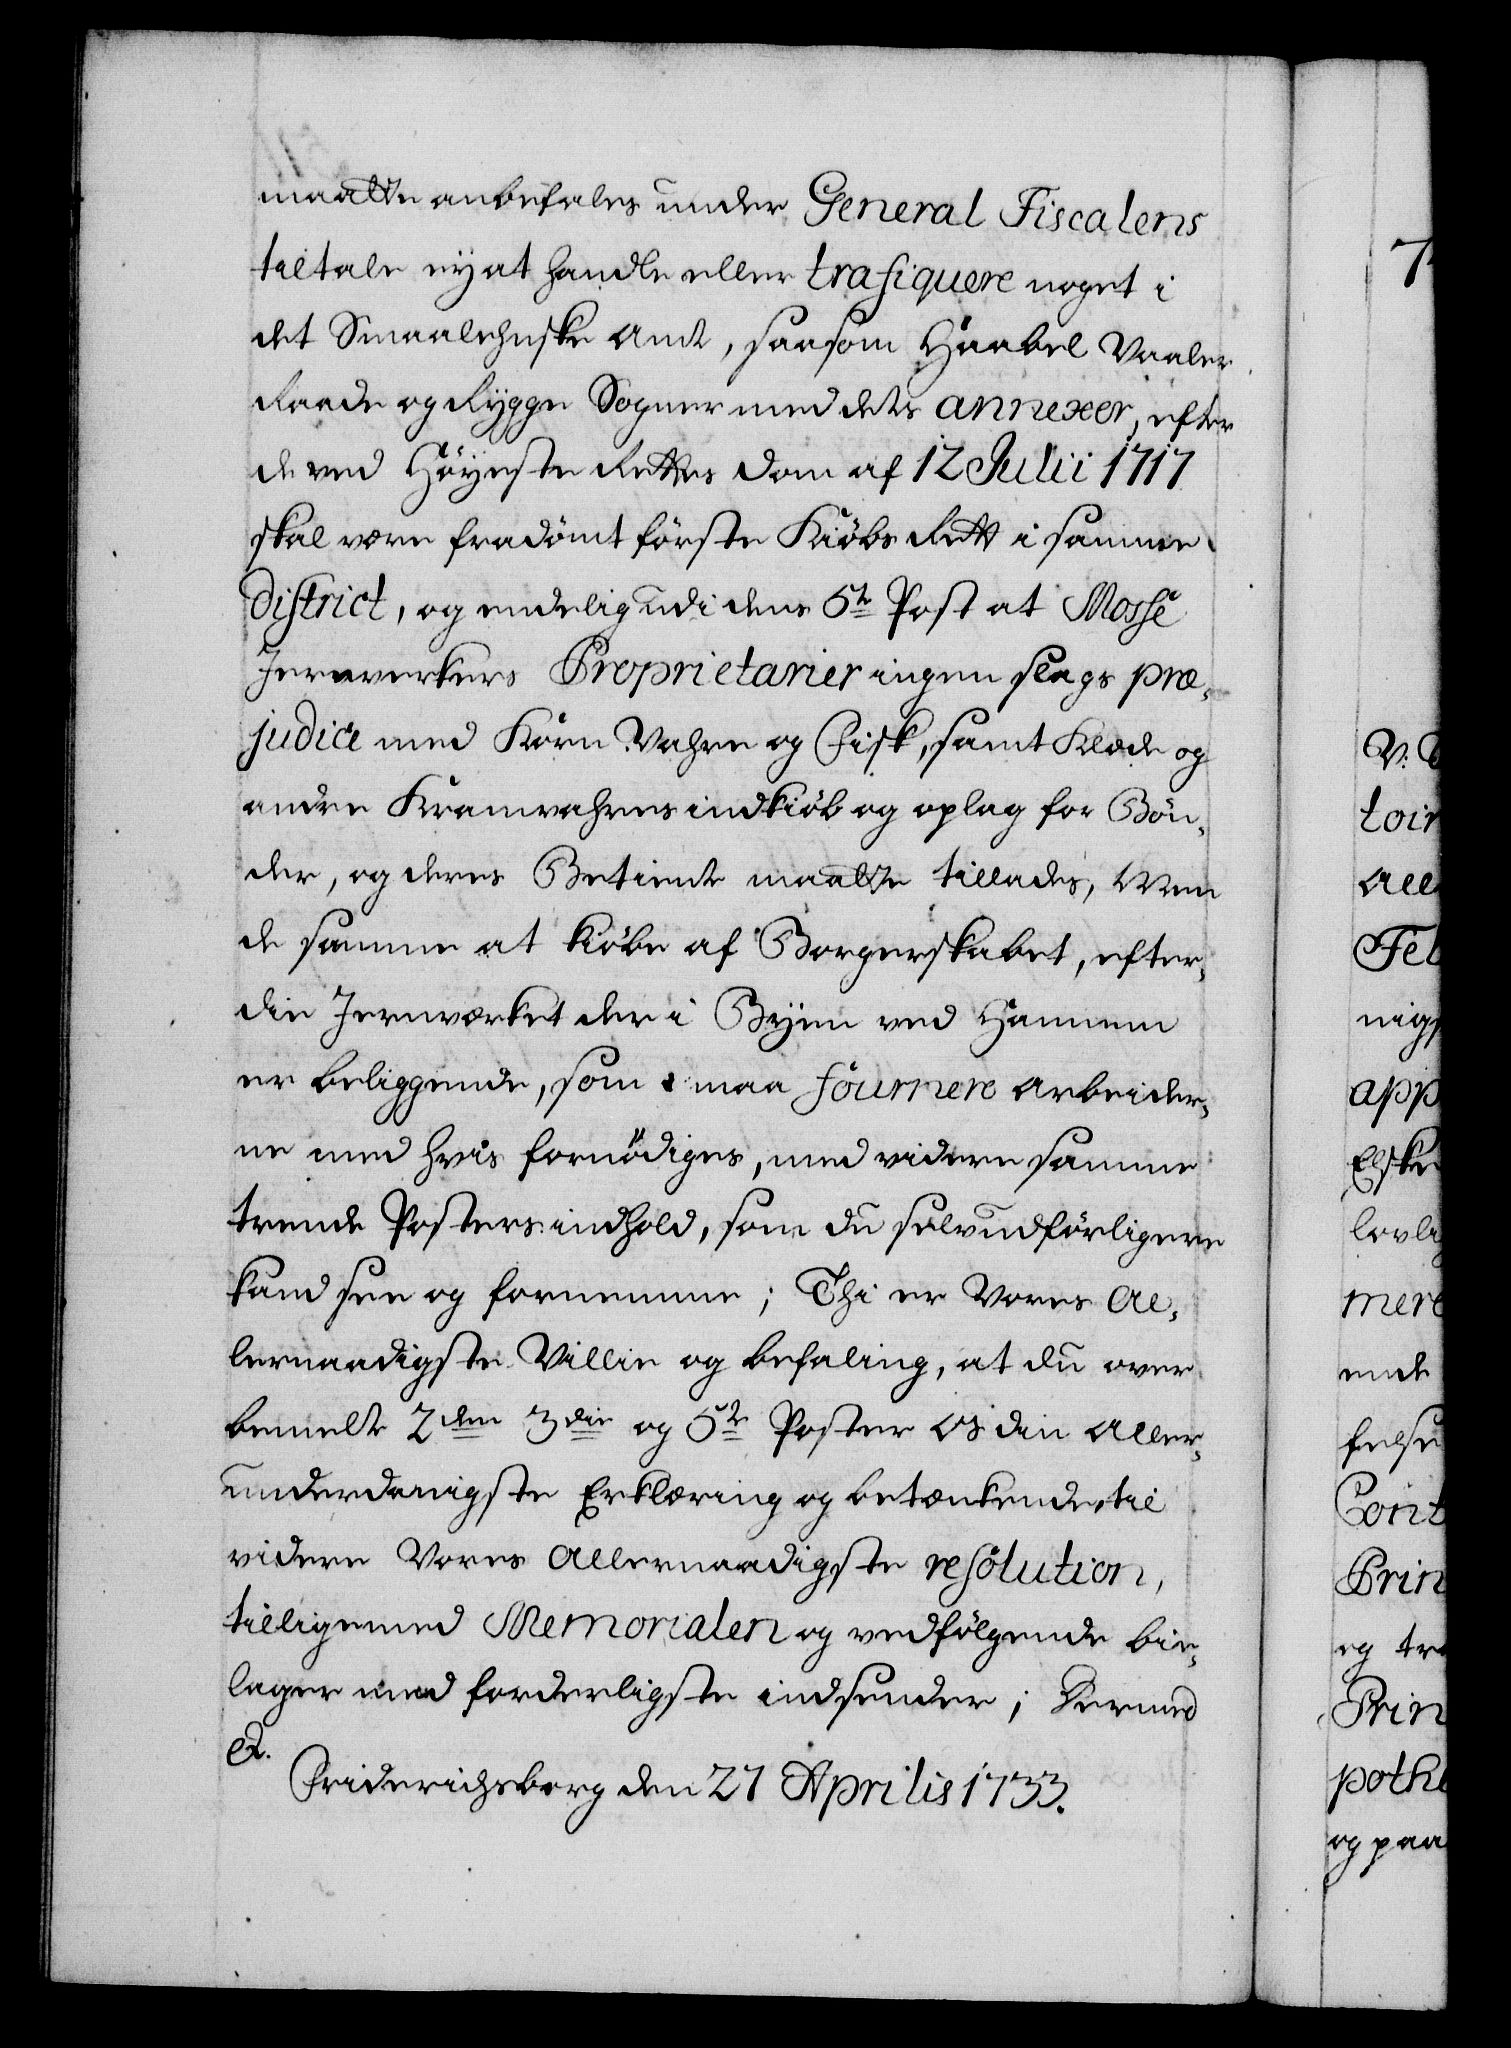 maatte anbefales under General Fiscalens
tiltale ey at handle eller trafiquere noget i
det Smaalehnske Amt, saasom Haabel Vaaler
Raade og Rygge Sogner med dets annexer, efter
de ved Höyeste Rettes Dom af 12 Julii 1717
skal være fradömt förste Kiöbs Rett i samme
District, og endelig udi dens 5te Post at Mosse
Jernverkers Proprietarier ingen slags præ-
judice med Korn Vahre og Fisk, samt Klæde og
andre Kramvahres indkiöb og oplag for Bön-
der, og deres Betiente maatte tillades, Men
de samme at kiöbe af Borgerskabet, efter-
die Jernværket der i Byen ved Hannem
er beliggende, som maa fournere Arbeider-
ne med hvis fornödiges, med videre samme
trende Posters indhold, som du selv udförligere
kand see og fornemme; Thi er Vores Al-
lernaadigste Villie og befaling, at du over
bemelte 2den 3die og 5te Poster Os din Aller-
underdanigste Erklæring og betænkende, til
videre Vores Allernaadigste resolution,
tilligemed Memorialen og vedfölgende bie-
lager med forderligste indsender; Dermed
&.
Friderichsborg den 27 Aprilis 1733.
7
V:
toir
All
Fel
nigs
app
Elske
lovli
mere
ende
felse
Cont
Prin
og tr
Prin
poth
og paa